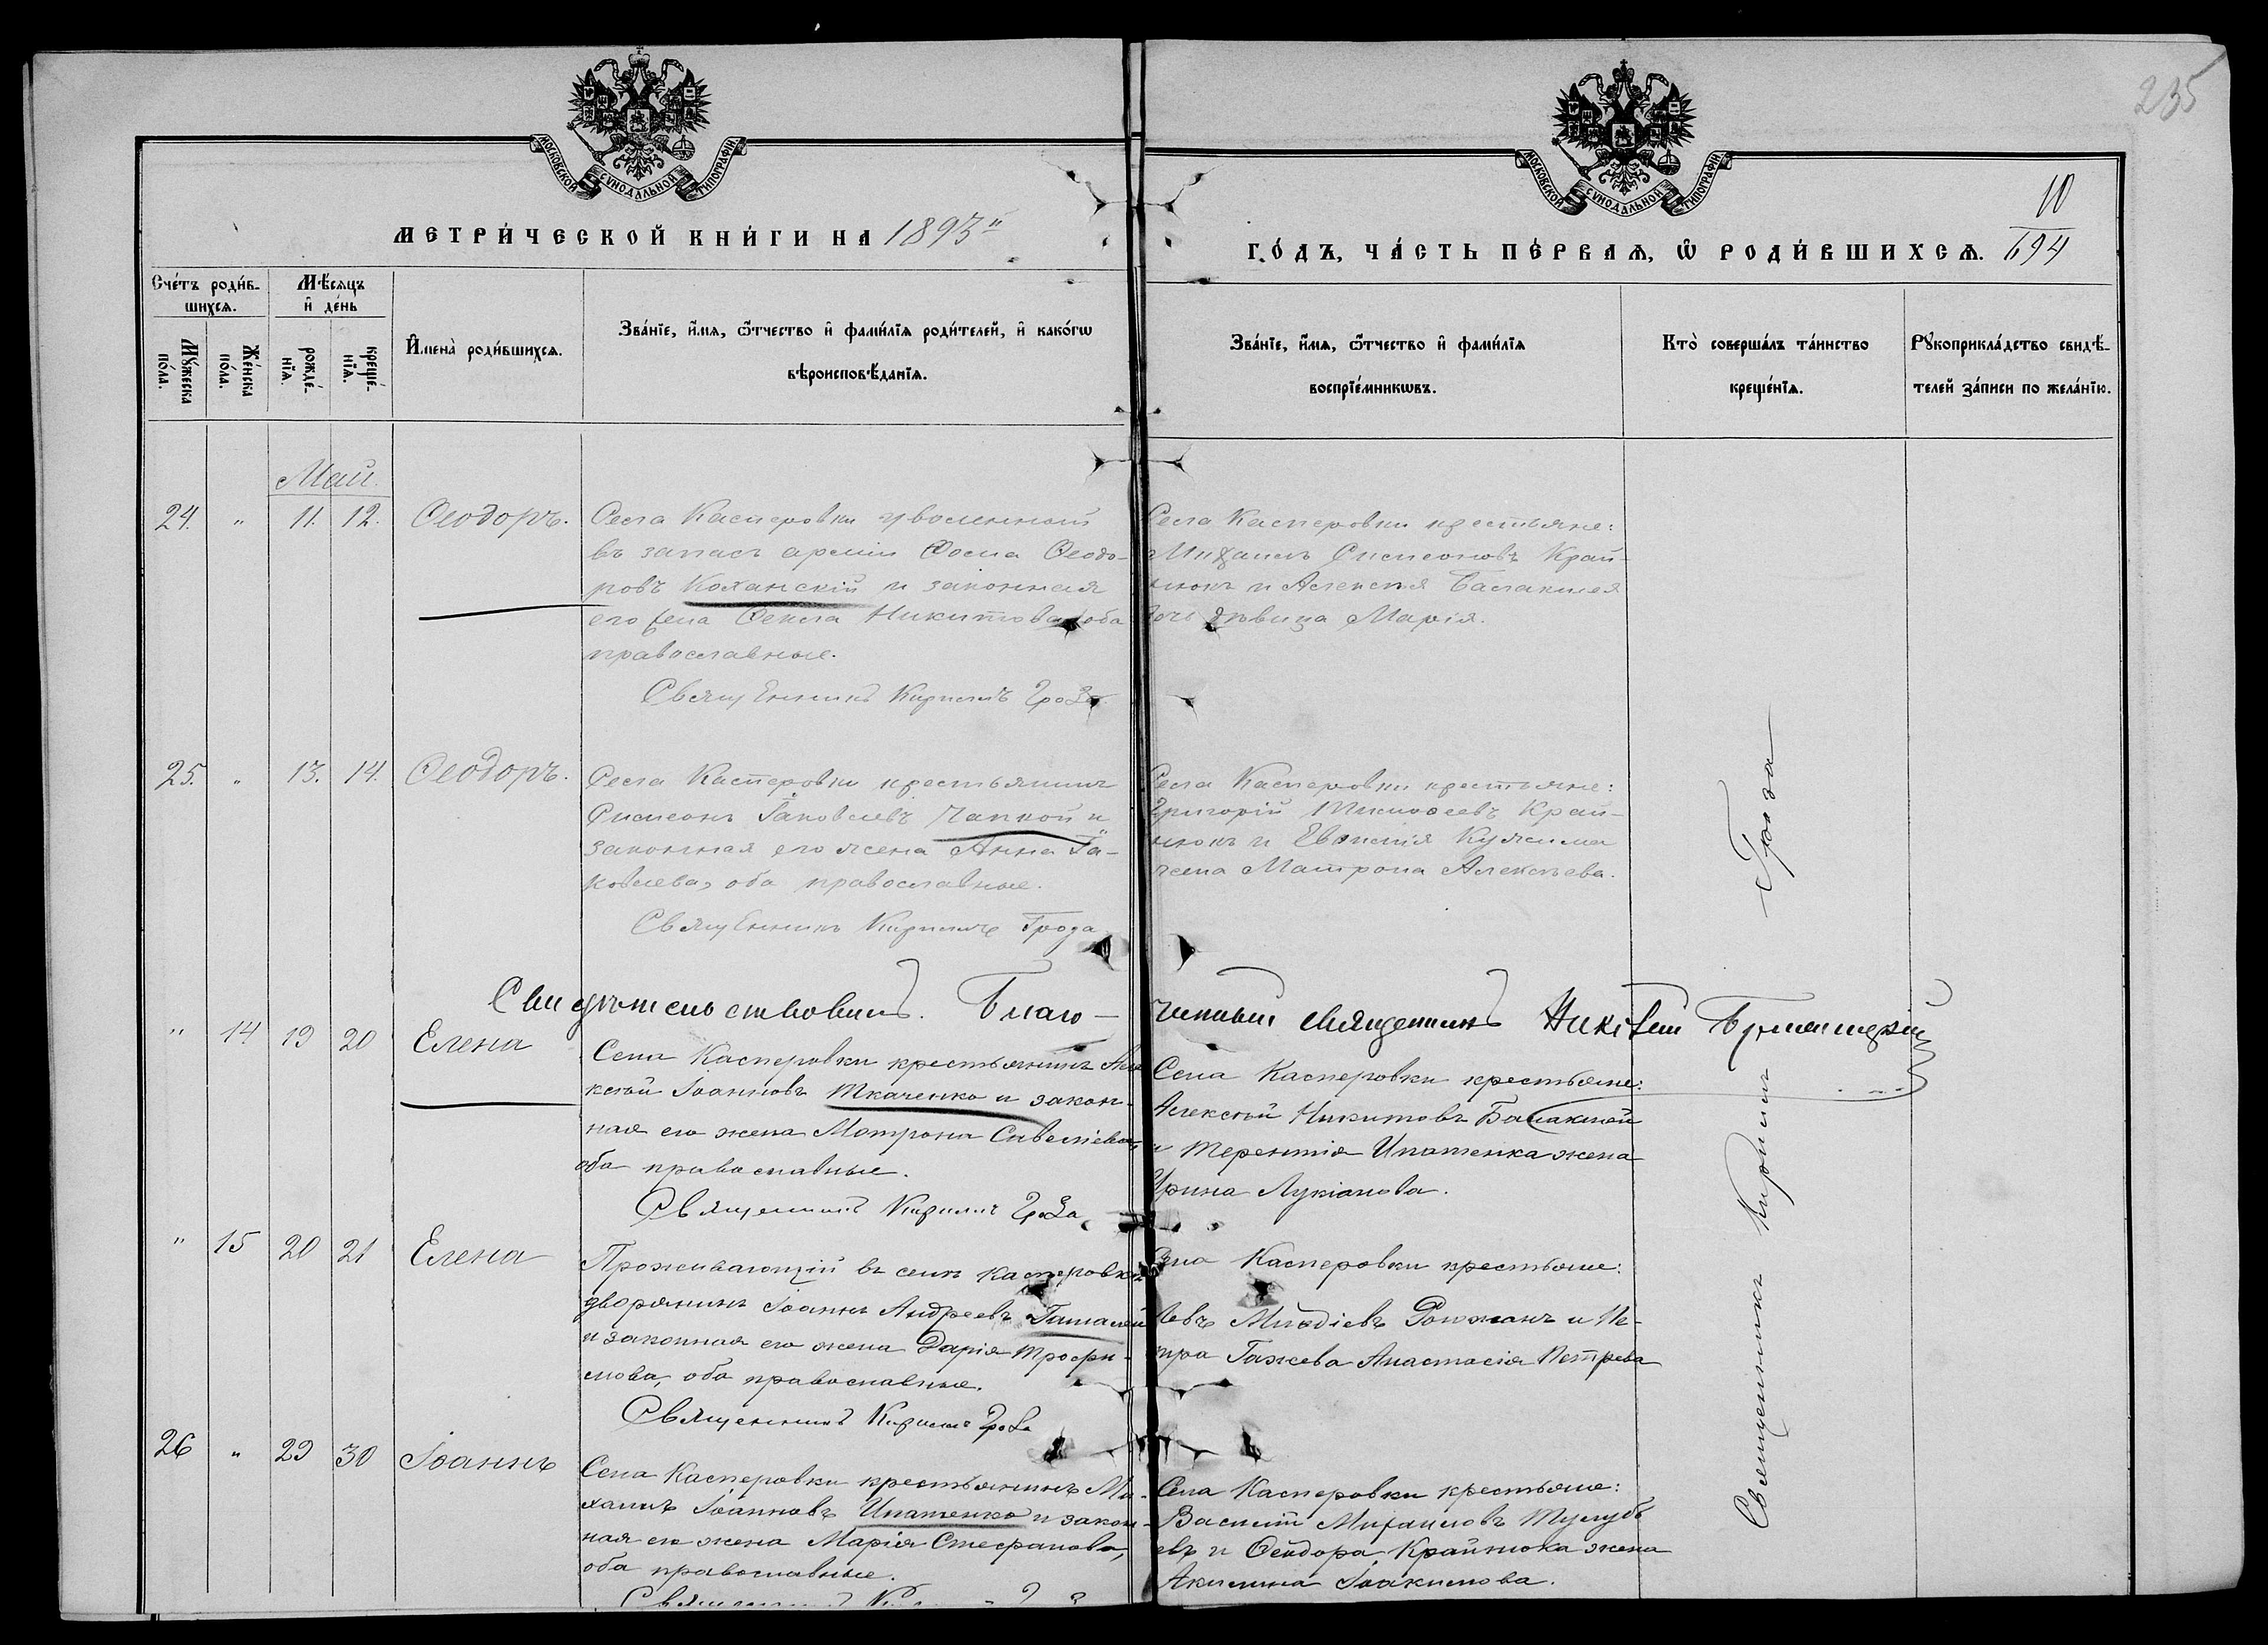 235
МОСКОВСКОЙ СУНОДАЛЬНОЙ ТИПОГРАФІИ
МОСКОВСКОЙ СУНОДАЛЬНОЙ ТИПОГРАФІИ
МЕТРИ́ЧЕСКОЙ КНИ́ГИ НА 1893й
ГО́ДЪ, ЧА́СТЬ ПЕ́РВАѦ, Ѽ РОДИ́ВШИХСѦ.
10
694
Сче́тъ роди́в-
шихсѧ.
Мѣ́сѧцъ
и҆ де́нь
Мꙋ́жеска
по́ла.
Же́нска
по́ла.
рожде́-
нїѧ.
креще́-
нїѧ.
И҆мена̀ роди́вшихсѧ.
Зва́нїе, и҆́мѧ, ѻ҆́тчество и҆ фами́лїѧ роди́телей, и҆ како́гѡ
вѣроисповѣ́данїѧ.
Зва́нїе, и҆́мѧ, ѻ҆́тчество и҆ фами́лїѧ
воспрїе́мникѡвъ.
Кто̀ соверша́лъ та́инство
креще́нїѧ.
Рꙋкоприкла́дство свидѣ́-
телей за́писи по жела́нїю.
Май.
24. " 11. 12. Ѳеодоръ.
Села Касперовки уволенный
въ запасъ арміи Ѳома Ѳеодо-
ровъ Коханскій и законная
его жена Ѳекла Никитова, оба
православные.
Священникъ Кириллъ Гроза
Села Касперовки крестьяне:
Михаилъ Симеоновъ Край-
нюкъ и Алексѣя Балаклея
дочь дѣвица Марія.
25. " 13. 14. Ѳеодоръ.
Села Касперовки крестьянинъ
Симеонъ Іаковлевъ Чапкой и
законная его жена Анна Іа-
ковлева, оба православные.
Священникъ Кириллъ Гроза
Села Касперовки крестьяне:
Григорій Тимоѳеевъ Край-
нюкъ и Евѳимія
жена Матрона Алексѣева.
Свидѣтельствовалъ. Благо-
чинный священникъ
" 14 19 20 Елена
Села Касперовки крестьянинъ Але
ксѣй Іоанновъ Ткаченко и закон-
ная его жена Матрона Савеліева,
оба православные.
Священникъ Кириллъ Гроза
Села Касперовки крестьяне:
Алексѣй Никитовъ Балаклей
и Терентія Ипатенка жена
Ирина Лукіанова.
" 15 20 21 Елена
Проживающій въ селѣ Касперовкѣ
дворянинъ Іоаннъ Андреевъ
и законная его жена Дарія Трофи-
мова, оба православные.
Священникъ Кириллъ Гроза
Села Касперовки крестьяне:
Левъ и Пе-
тра Гажева Анастасія Петрова
26 " 29 30 Іоаннъ
Села Касперовки крестьянинъ Ми-
хаилъ Іоанновъ Ипатенко и закон-
ная его жена Марія Стефанова,
оба православные.
Села Касперовки крестьяне:
Василій Михаиловъ Тулубъ
евъ и Ѳеодора Крайнюка жена
Акилина Іоакимова.
Священникъ Кириллъ Гроза